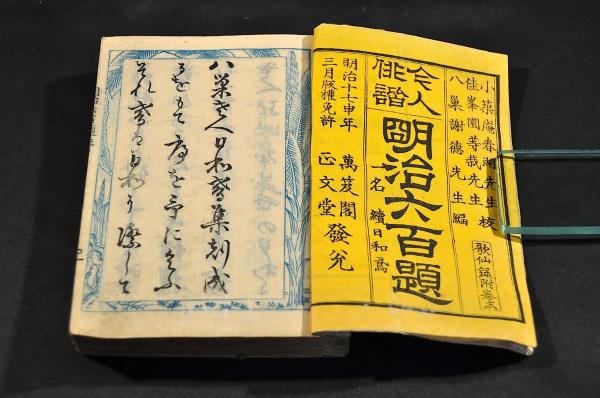 小築庵春湖先生校
佳峯園等栽先生
八巣謝徳先生編
歌仙録附巻末
今人
俳諧
明治六百題
一名 續日和鳶
明治十七申年
三月版權免許
萬笈閣
正文堂 發兌
八巣老人日和鳶集刻成
るをもて序を予にこふ
それ鳶